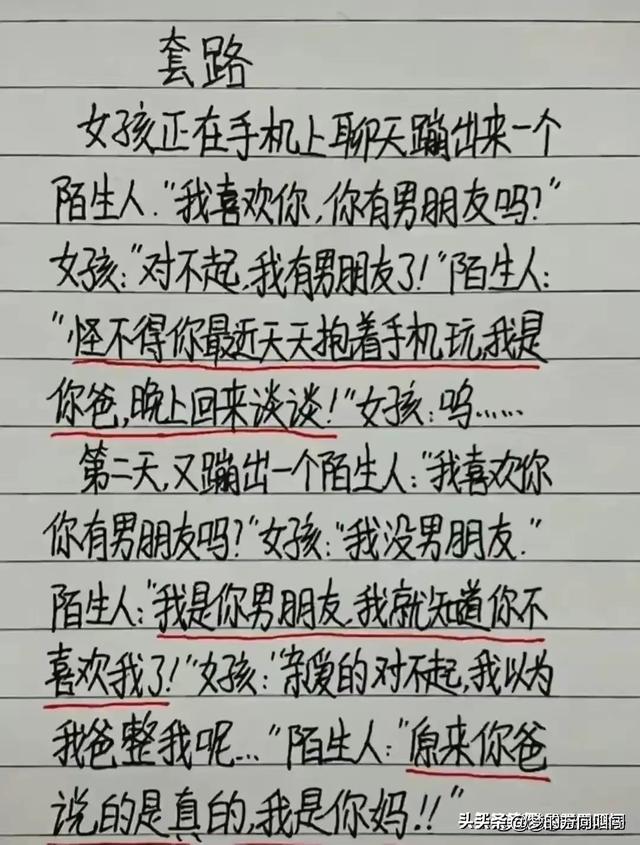 套路
女孩正在手机上聊天蹦出来一个
陌生人："我喜欢你，你有男朋友吗？"
女孩："对不起，我有男朋友了！"陌生人：
"怪不得你最近天天抱着手机玩，我是
你爸，晚上回来谈谈！"女孩：呜……
第二天，又蹦出一个陌生人："我喜欢你
你有男朋友吗？"女孩："我没男朋友."
陌生人："我是你男朋友，我就知道你不
喜欢我了！"女孩："亲爱的对不起，我以为
我爸整我呢…"陌生人："原来你爸
说的是真的，我是你妈！！"
头条